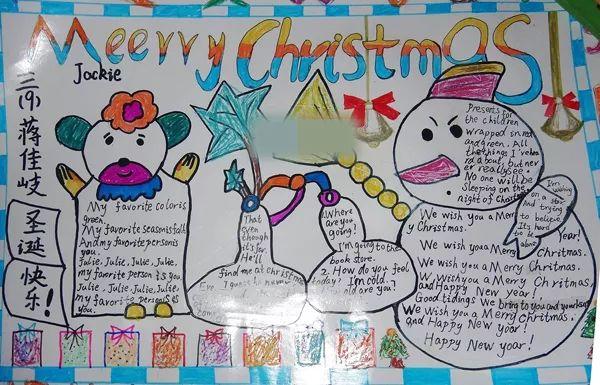 Meerry ChristmAS
Jackie
三(9)
蒋佳岐
圣诞
快乐!
My favorite color is
green.
My favorite season is fall
And my fanvorite person is
you.
Julie, Julie, Julie, Julie,
my favorite person is you
Julie, Julie, Julie, Julie,
my favorite person is es
you.
That
even
though
it's far
He'll
find me at christmas
Eve. I guess
Where
are you
going?
I'm going to the
book store.
2. How do you feel
today? I'm cold.
old are you?
Presents for
the children
wrapped in red
and green. All
the things I've hea
rd about, but nev
er really see.
No one will be
sleeping on the
night of Christ
I'm wishing
on a star
and trying
to believe
It's hard
to be
alone
We wish you a Merr
y Christmas.
We wish you a Merry
Year!
Christmas.
We wish you a Merry Chritmas.
W wish you a Merry Christmas,
and Happy New year!
Good tidings We bring to you and your kin
We Wish you a Merry Christmas.
and Happy New year!
Happy New year!